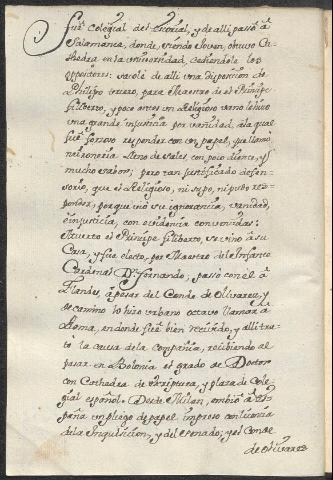 fué Colegial del Escorial, y de alli passó á
Salamanca, donde, siendo Joven, obtuvo Ca-
thedra en la Universidad, cediendole los
oppositores: sacóle de alli una disposicion de
Philippo tercero, para Maestro de el Principe
Filiberto, y poco antes un Religioso
una grande injusticia por vanidad, á la qual
fué forsoso responder con un papel, que llamó
lleno de sales, con poco diente, y
mucho sabor; pero tan justificado defen-
sorio, que el Religioso, ni supo, ni pudo res-
ponder, porque vió su ignorancia, vanidad,
è injusticia, con evidencia convencidas:
Muerto el Principe Filiberto, se vino á su
Casa, y fue electo, por Maestro del Infante
Cardenal Dn. Fernando; passó con el á
Flandes, á pesar del Conde de Olivares, y
de camino lo hizo urbano octavo llamar á
Roma, en donde fué bien recibido, y alli tra-
tó la causa de la Compañia, recibiendo al
pasar en Bolonia el grado de Doctor
con Cathedra de Escriptura, y plaza de Cole-
gial español. Desde Milan, embió á Es-
paña un pliego de papel impreso con licencia
de la Inquisicion, y del Senado; y el Conde
de Olivares